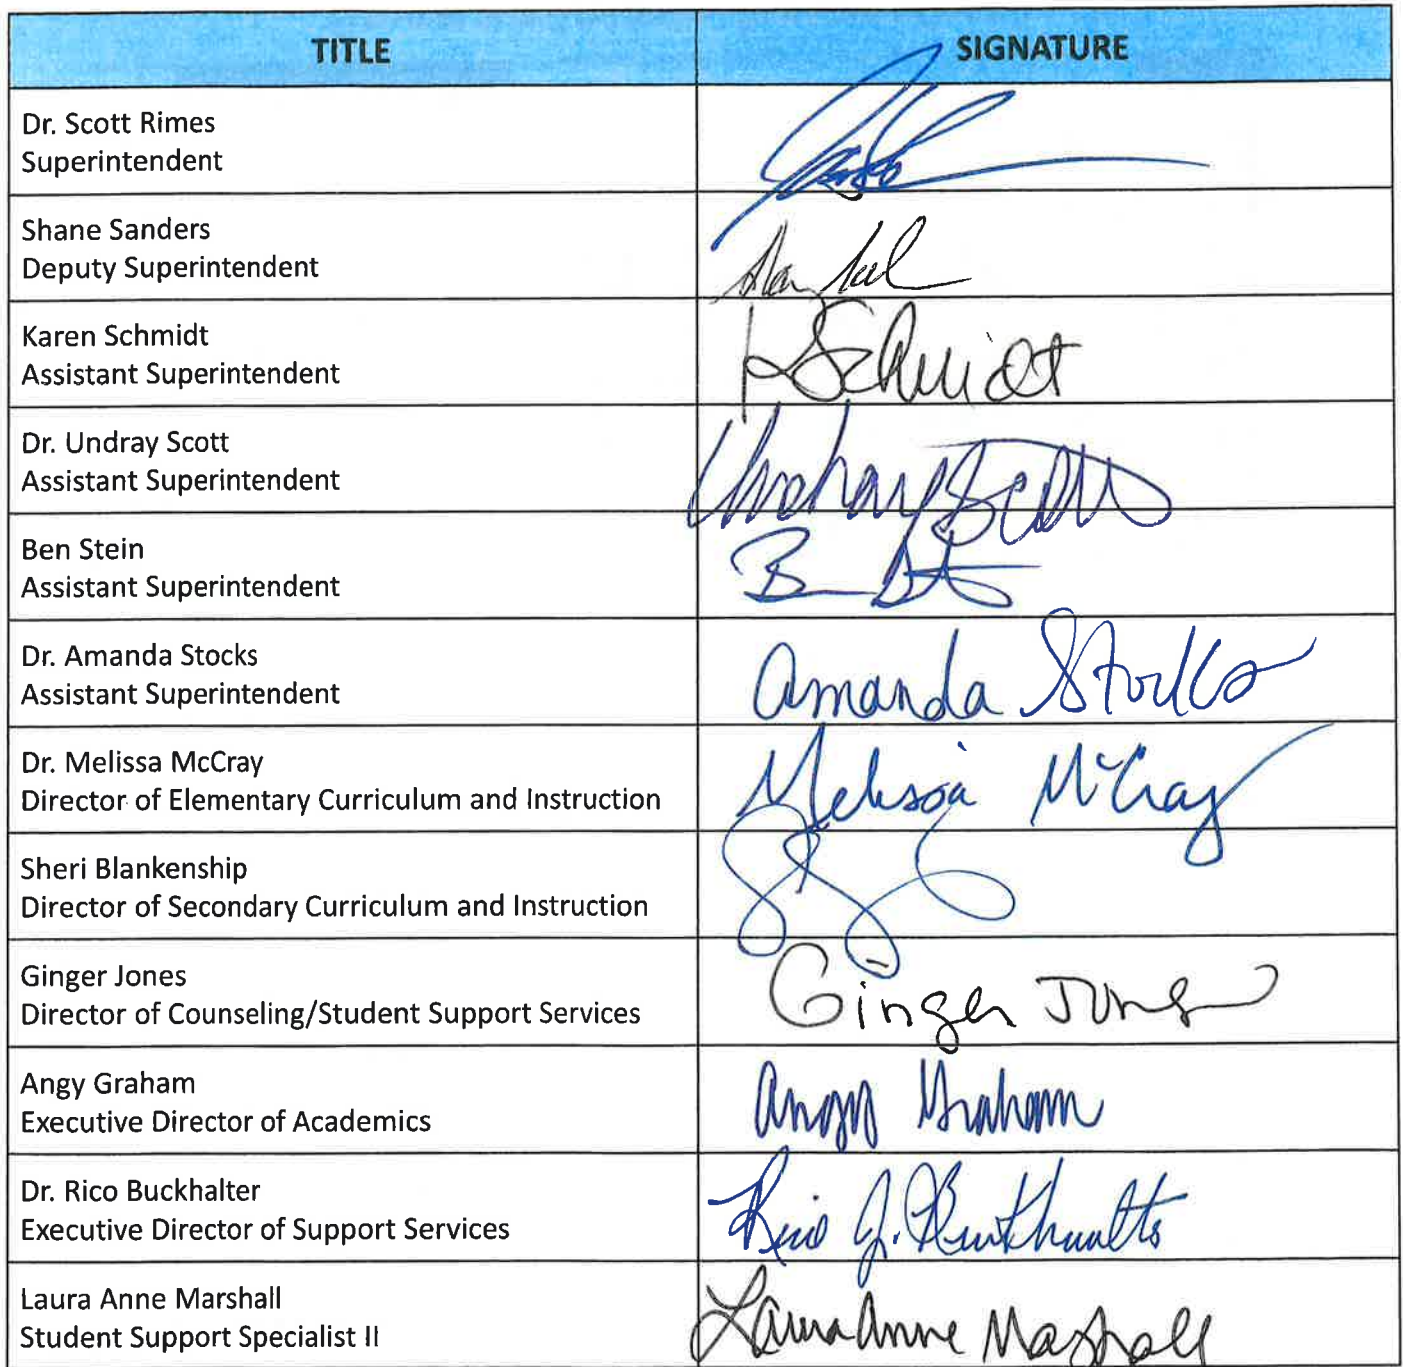 TITLE
SIGNATURE
Dr. Scott Rimes
Superintendent
Shane Sanders
Deputy Superintendent
Karen Schmidt
Assistant Superintendent
K Schmidt
Dr. Undray Scott
Assistant Superintendent
Undray Scott
Ben Stein
Assistant Superintendent
Dr. Amanda Stocks
Assistant Superintendent
Amanda Stocks
Dr. Melissa McCray
Director of Elementary Curriculum and Instruction
Melissa McCray
Sheri Blankenship
Director of Secondary Curriculum and Instruction
Ginger Jones
Director of Counseling/Student Support Services
Ginger Jones
Angy Graham
Executive Director of Academics
Angy Graham
Dr. Rico Buckhalter
Executive Director of Support Services
Rico J. Buckhalter
Laura Anne Marshall
Student Support Specialist II
Laura Anne Marshall